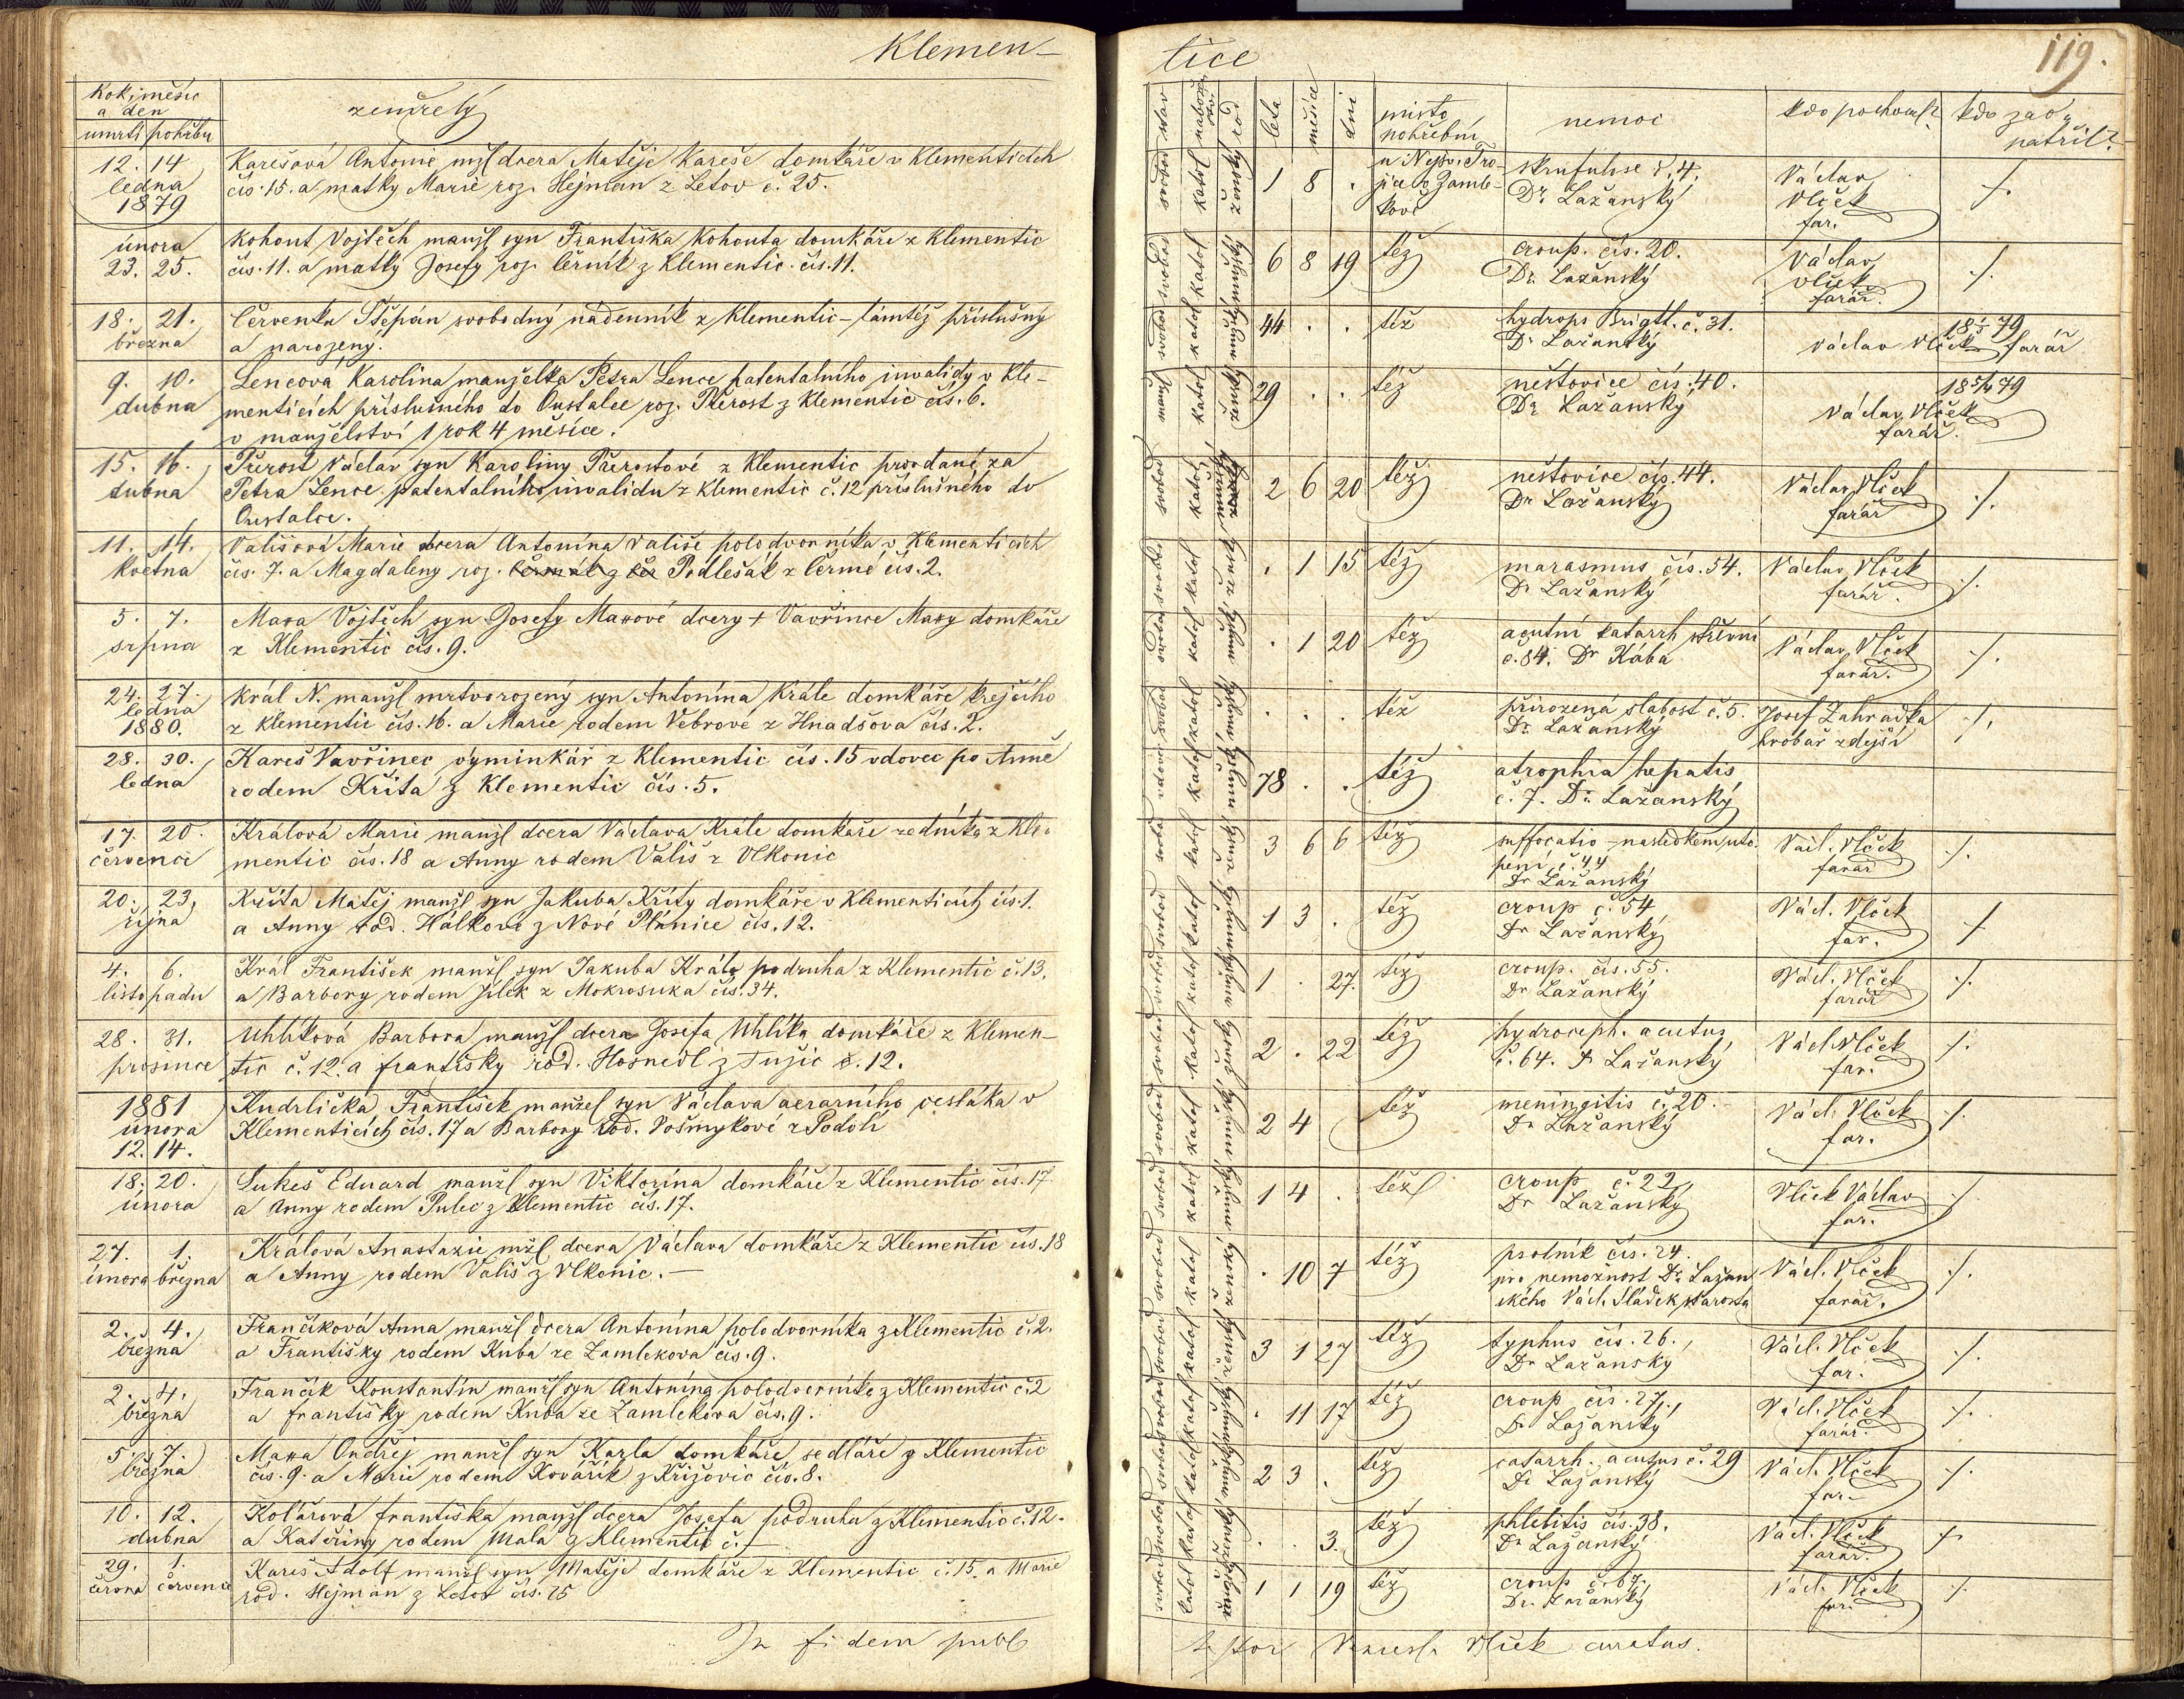 Klemen-
Rok, měsíc
a den
úmrtí pohřbu
zemřelý
12. 14
ledna
1879
Karešová Antonie mžl dcera Matěje Kareše domkáře v Klementicích
čís. 15. a matky Marie roz. Hejman z Letov č. 25.
února
23. 25.
Kohout Vojtěch manžl syn Františka Kohouta domkáře z Klementic
čís. 11. a matky Josefy roz. Černík z Klementic čís. 11.
18. 21.
března
Červenka Štěpán svobodný nádenník z Klementic - tamtéž příslušný
a narozený.
9. 10.
dubna
Lencová Karolina manželka Petra Lence patentalního invalidy v Kle-
menticích příslušného do Oustalce roz. Přerost z Klementic čís. 6.
v manželství 1 rok 4 měsíce.
15. 16.
dubna
Přerost Václav syn Karoliny Přerostové z Klementic provdané za
Petra Lence patentalního invalidu z Klementic č. 12 příslušného do
Oustalce.
11. 14.
května
Vališová Marie dcera Antonína Vališe polodvorníka v Klementicích
čís. 7. a Magdaleny roz. Podlešák z Čermé čís. 2.
5. 7.
srpna
Maxa Vojtěch syn Josefy Maxové dcery + Vavřince Maxy domkáře
z Klementic čís. 9.
24. 27.
ledna
1880.
Král N. manžl mrtvorozený syn Antonína Krále domkáře krejčího
z Klementic čís. 16. a Marie rodem Vébrové z Hnadšova čís. 2.
28. 30.
ledna
Kareš Vavřinec výminkář z Klementic čís. 15 vdovec po Anně
rodem Křitá z Klementic čís. 5.
17. 20.
červenci
Králová Marie manžl dcera Václava Krále domkáře zedníka z Kle-
mentic čís. 18 a Anny rodem Vališ z Vlkonic
20. 23.
října
Křita Matěj manžl syn Jakuba Křity domkáře v Klementicích čís. 1.
a Anny rod. Hálkové z Nové Plánice čís. 12.
4. 6.
listopadu
Král František manžl syn Jakuba Krále podruha z Klementic č. 13.
a Barbory rodem Jílek z Mokrosuka čís. 34.
28. 31.
prosince
Uhlíková Barbora manžl dcera Josefa Uhlíka domkáře z Klemen-
tic č. 12. a Františky rod. Hosnedl z Tužic č. 12.
1881
února
12. 14.
Kudrlička František manžel syn Václava aerarního cestáka v
Klementicích čís. 17 a Barbory rod. Vošmykové z Podolí
18. 20.
února
Lukeš Eduard manžl syn Viktorína domkáře z Klementic čís. 17
a Anny rodem Pulec z Klementic čís. 17.
27. 1.
února března
Králová Anastazie mžl dcera Václava domkáře z Klementic čís. 18
a Anny rodem Vališ z Vlkonic. -
2. 4.
března
Frančíková Anna manžl dcera Antonína polodvorníka z Klementic č. 2.
a Františky rodem Kuba ze Zamlekova čís. 9.
2. 4.
března
Frančík Konstantín manžl syn Antonína polodvorníka z Klementic č. 2
a Františky rodem Kuba ze Zamlekova čís. 9.
5. 7.
března
Maxa Ondřej manžl syn Karla domkáře sedláře z Klementic
čís. 9. a Marie rodem Kovářík z Křižovic čís. 8.
10. 12.
dubna
Kolářová Františka manžl dcera Josefa podruha z Klementic č. 12.
a Kateřiny rodem Malá z Klementic č. -
29. 1.
června července
Kareš Adolf manžl syn Matěje domkáře z Klementic č. 15. a Marie
rod. Hejman z Letov čís. 25
In fidem publ
tice
119.
stav
nábožen
rod
léta
měsíc
dni
místo
pohřební
nemoc
kdo pochoval?
kdo zao-
patřil?
svobod katol ženský 1 8 .
u Nejsv. Tro-
jice v Zamle-
kově
skrufulose č. 4.
Dr Lažanský
Václav
Vlček
far.
./.
svobod katol mužský 6 8 19 též
croup. čís. 20.
Dr. Lažanský
Václav
Vlček
farář.
./.
svobod katol mužský 44 . . též
hydrops Brigtt. č. 31.
Dr Lažanský
Václav Vlček farář
manžl katol ženský 29 . . též
neštovice čís. 40.
Dr. Lažanský
Václav Vlček
farář.
svobod katol mužský 2 6 20 též
neštovice čís. 44.
Dr Lažanský
Václav Vlček
farář
./.
svobod katol ženský . 1 15 též
marasmus čís. 54.
Dr Lažanský
Václav Vlček
farář.
./.
svobod katol mužský . 1 20 též
acutní katarrh střevní
č. 84. Dr Kába
Václav Vlček
farář.
./.
svobod katol mužský . . . též
přirozená slabost č. 5.
Dr. Lažanský
Josef Zahrádka
hrobař zdejší
./.
vdovec katol mužský 78 . . též
atrophia hepatis
č. 7. Dr. Lažanský
svobod katol ženský 3 6 6 též
suffocatio - následkem uto-
pení č. 44
Dr Lažanský
Václ. Vlček
farář
./.
svobod katol mužský 1 3 . též
croup č. 54
Dr Lažanský
Václ. Vlček
far.
./.
svobod katol mužský 1 . 27. též
croup. čís. 55.
Dr Lažanský
Václ. Vlček
farář
./.
svobod katol ženský 2 . 22 též
hydroceph. acutus
č. 64. Dr Lažanský
Václ. Vlček
far.
./.
svobod katol mužský 2 4 též
meningitis č. 20.
Dr Lažanský
Václ. Vlček
far.
./.
svobod katol mužský 1 4 . též
croup č. 22
Dr Lažanský
Vlček Václav
far.
./.
svobod katol ženský . 10 7 též
psotník čís. 24.
pro nemožnost Dr. Lažan
ského Václ. Sládek starosta
Václ. Vlček
farář.
./.
svobod katol ženský 3 1 27 též
typhus čís. 26.
Dr Lažanský
Václ. Vlček
far.
./.
svobod katol mužský . 11 17 též
croup čís. 27.
Dr Lažanský
Václ. Vlček
farář.
./.
svobod katol mužský 2 3 . též
catarrh. acutus č. 29
Dr Lažanský
Václ. Vlček
far.
./.
svobod katol ženský . . 3. též
phlebitis čís. 38.
Dr Lažanský
Václ. Vlček
farář.
./.
svobod katol mužský 1 1 19 též
croup č. 67.
Dr. Lažanský
Václ. Vlček
far.
./.
Vlček curatus.